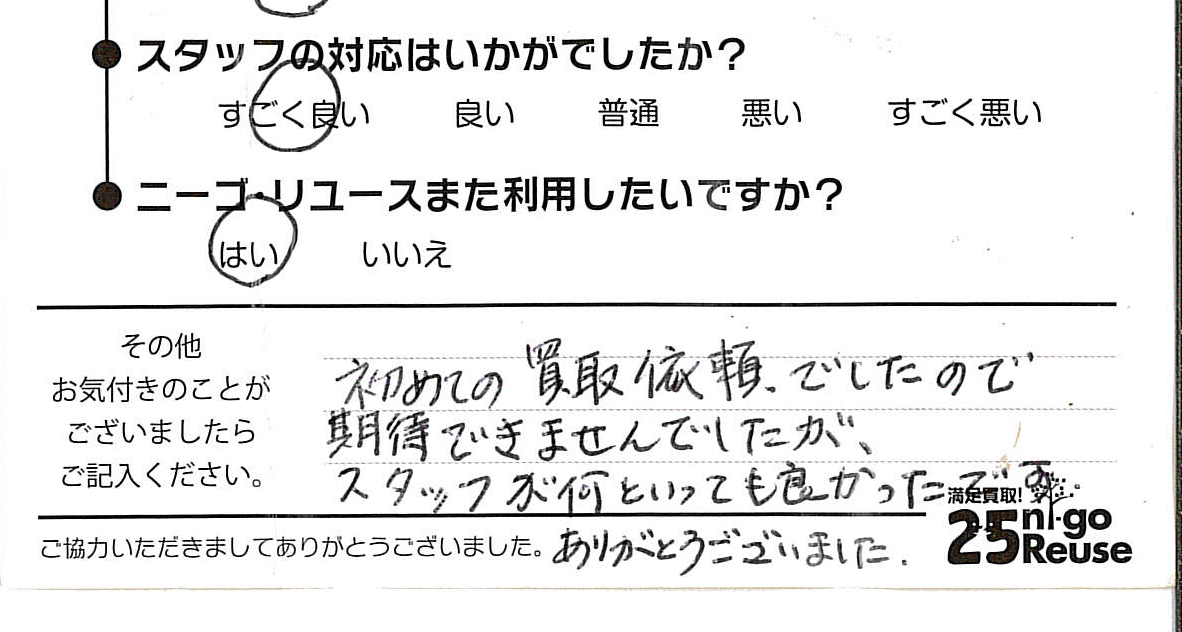 スタッフの対応はいかがでしたか?
すごく良い 良い 普通 悪い すごく悪い
ニーゴ・リユースまた利用したいですか?
はい いいえ
その他
お気付きのことが
ございましたら
ご記入ください。
初めての買取依頼.でしたので
期待できませんでしたが、
スタッフが何といっても良かったです
ありがとうございました.
ご協力いただきましてありがとうございました。
満足買取!
25 ni-go
Reuse